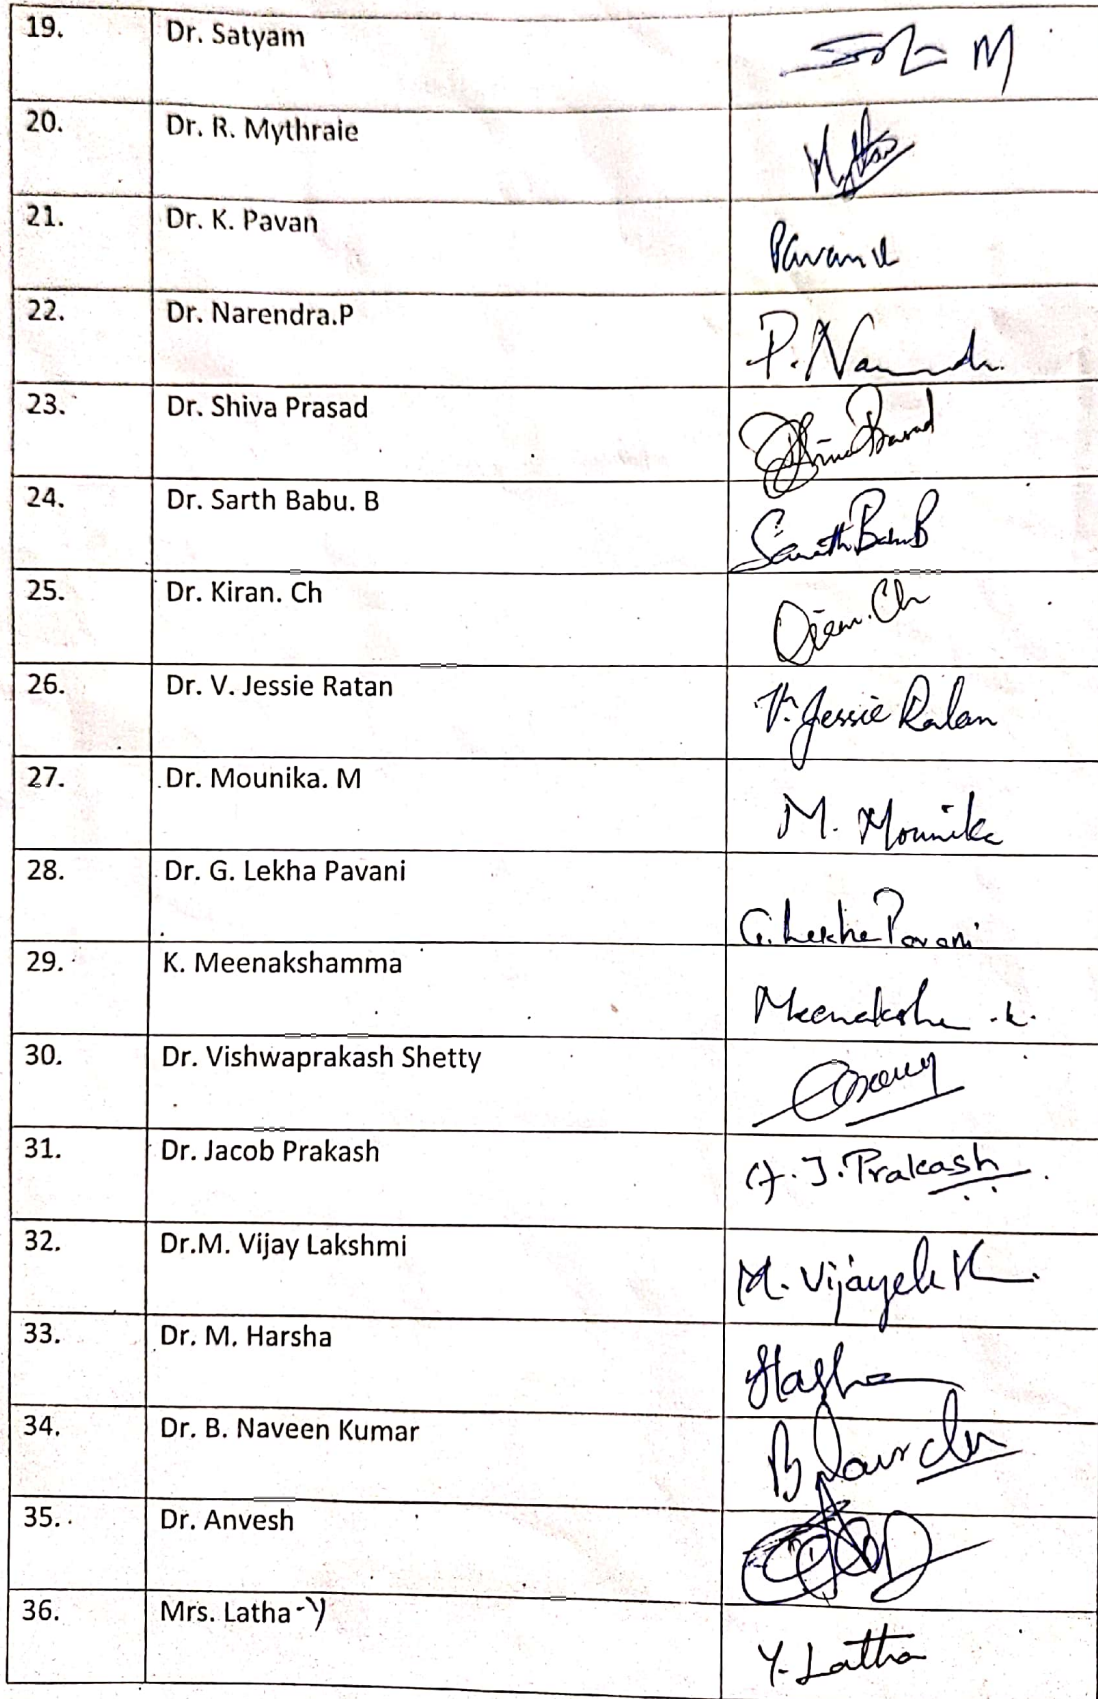 19. Dr. Satyam M
20. Dr. R. Mythraie
21. Dr. K. Pavan Pavan K
22. Dr. Narendra.P P. Narendr.
23. Dr. Shiva Prasad Shiva Prasad
24. Dr. Sarth Babu. B Sarath Babu B
25. Dr. Kiran. Ch Kiran. Ch
26. Dr. V. Jessie Ratan V. Jessie Ratan
27. Dr. Mounika. M M. Mounika
28. Dr. G. Lekha Pavani G. Lekha Pavani
29. K. Meenakshamma .k.
30. Dr. Vishwaprakash Shetty
31. Dr. Jacob Prakash J. Prakash
32. Dr.M. Vijay Lakshmi M.
33. Dr. M. Harsha
34. Dr. B. Naveen Kumar B
35. Dr. Anvesh
36. Mrs. Latha-Y Y. Latha